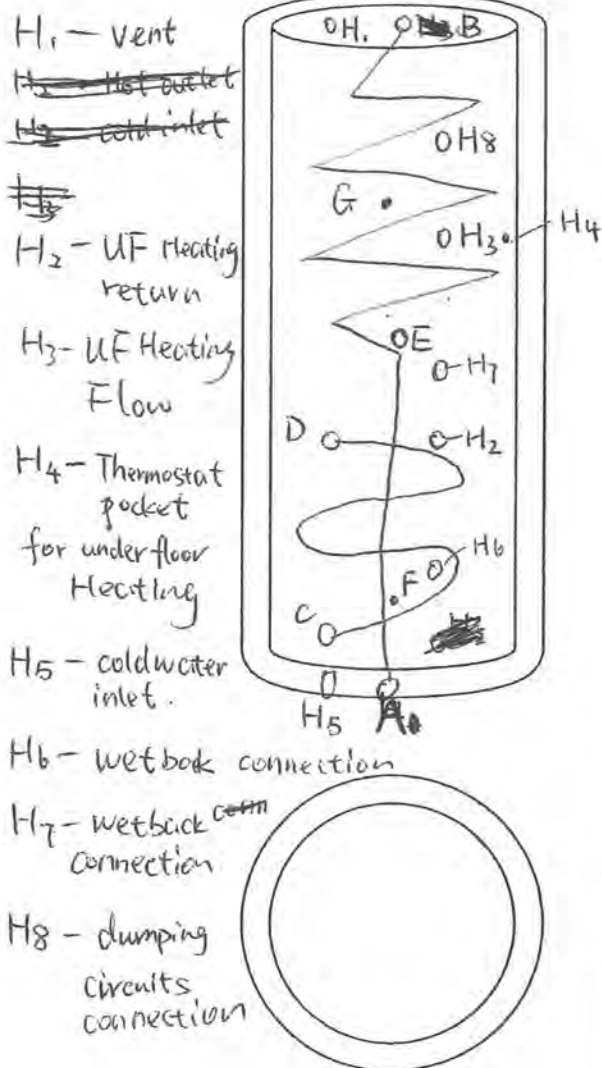 H1 – vent
H2 – Hot outlet
H3 – cold inlet
H3
H2 – UF Heating
return
H3 – UF Heating
Flow
H4 – Thermostat
pocket
for underfloor
Heating
H5 – coldwater
inlet.
H6 – wetback connection
H7 – wetback conn
connection
H8 – dumping
circuits
connection
H1
B
H8
G
H3
H4
E
H7
D
H2
H6
F
C
H5
A